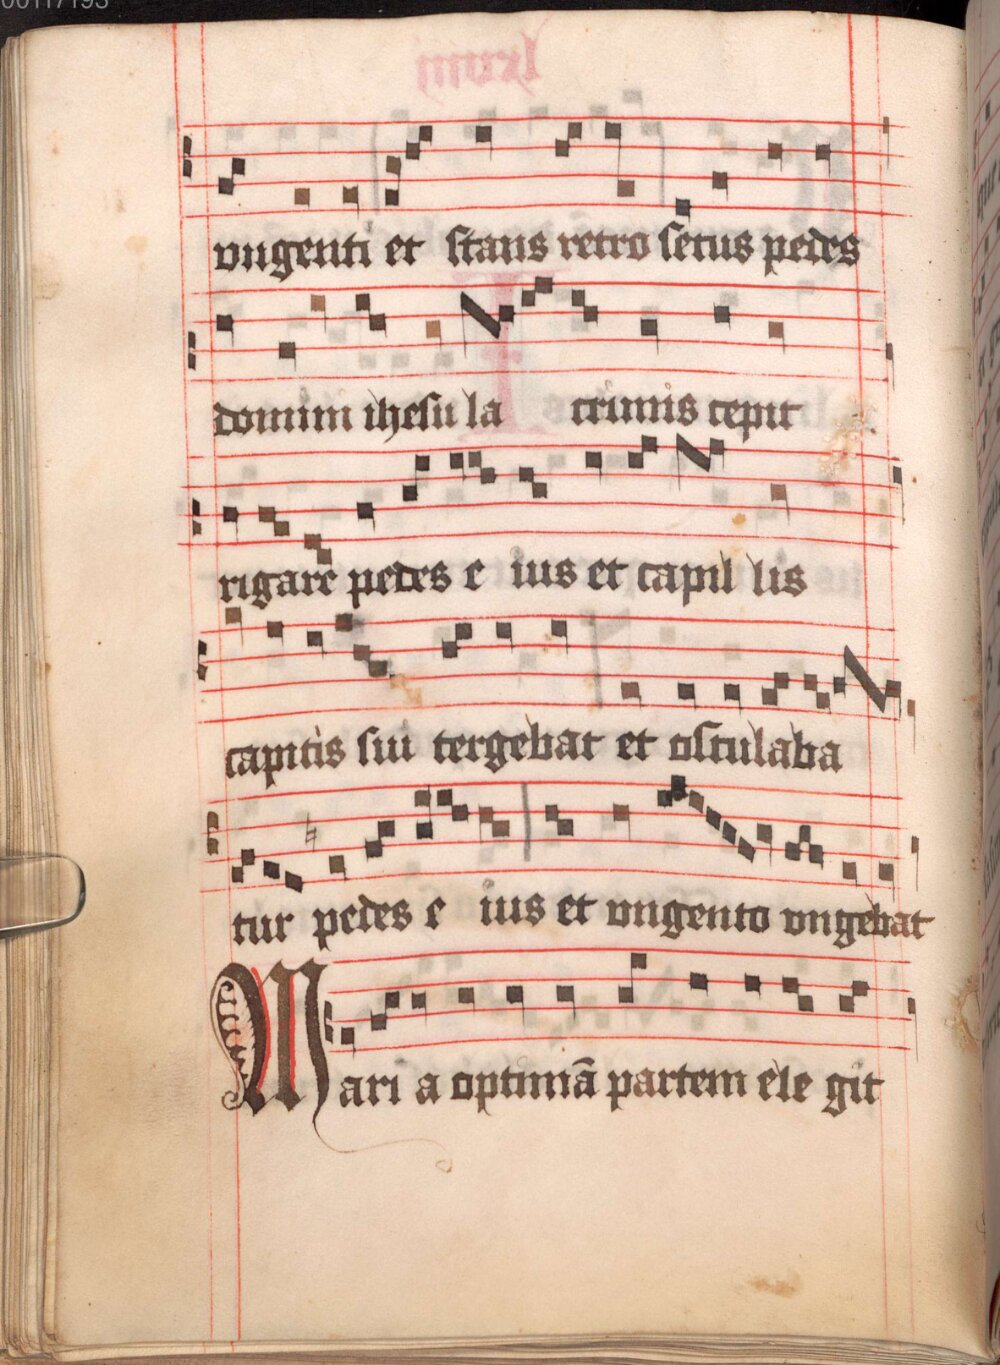 00117193
vngenti et stans retro secus pedes
domini ihesu la crimis cepit
rigare pedes e ius et capil lis
capitis sui tergebat et osculaba
tur pedes e ius et vngento vngebat
Mari a optimā partem ele git